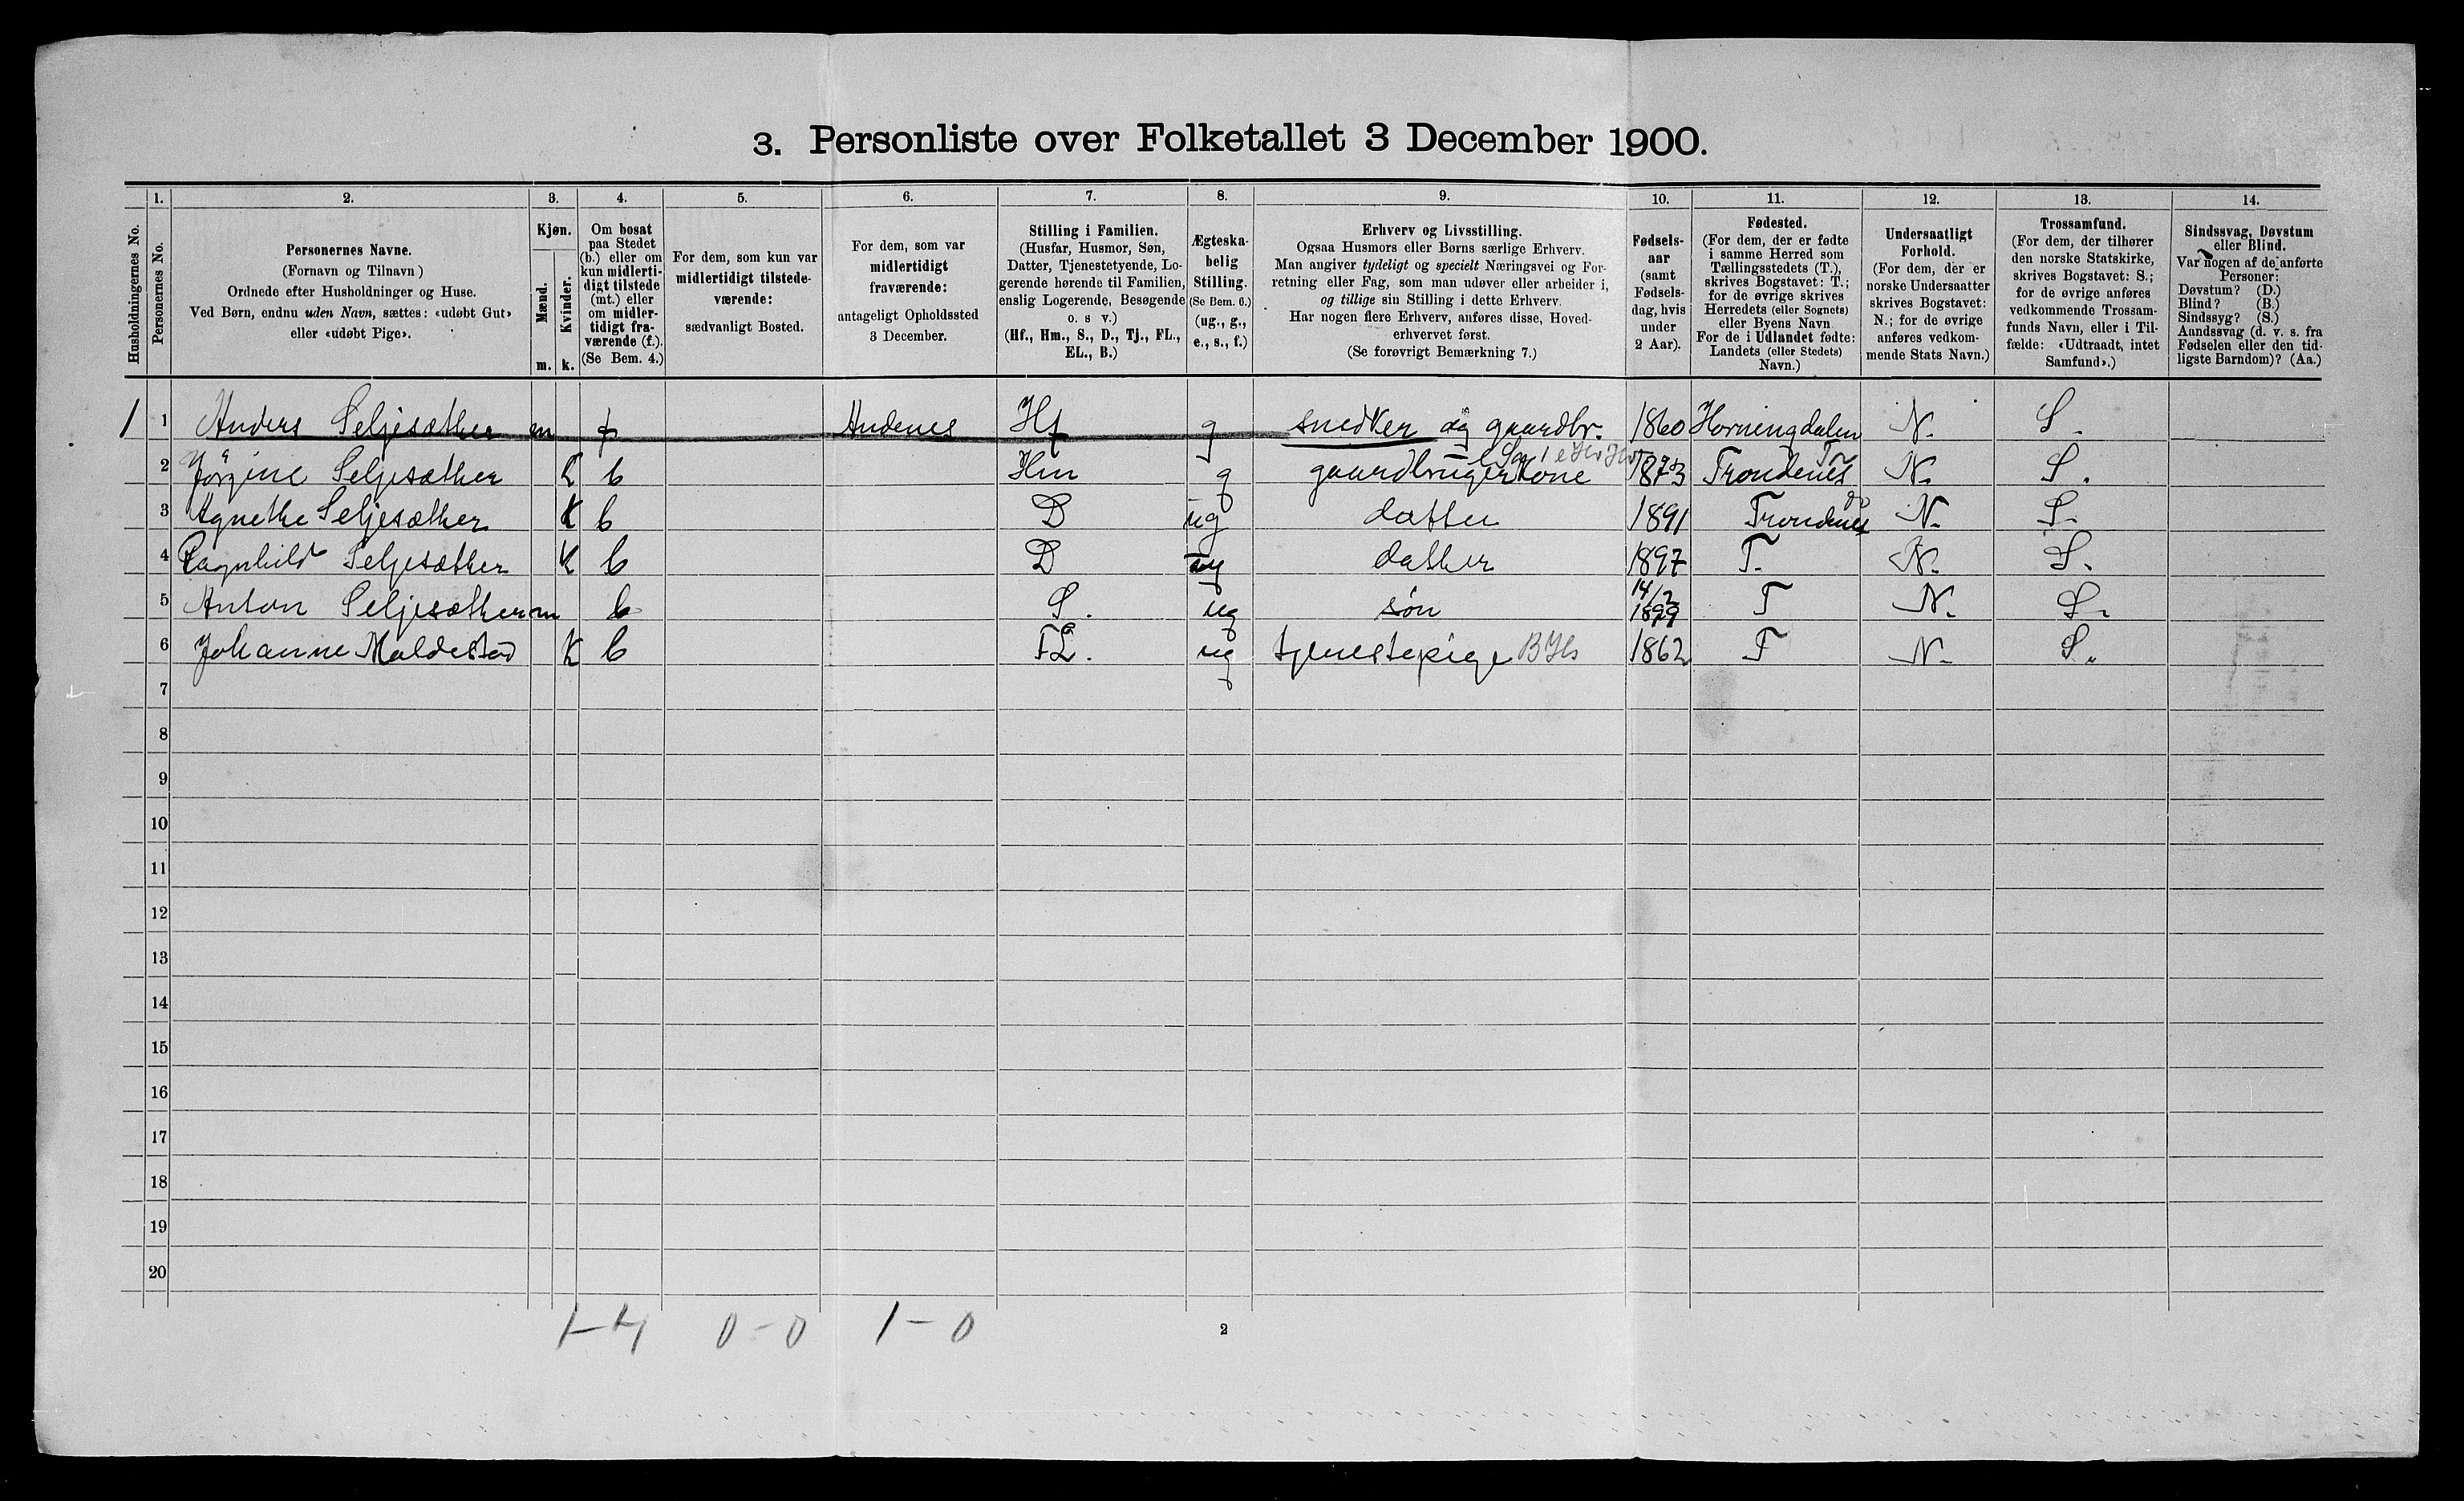 3. Personliste over Folketallet 3 December 1900.
1. 2. 3. 4. 5. 6. 7. 8. 9. 10. 11. 12. 13. 14.
Husholdningernes No.
Personernes No.
Personernes Navne.
(Fornavn og Tilnavn)
Ordnede efter Husholdninger og Huse.
Ved Børn, endnu uden Navn, sættes: «udøbt Gut»
eller «udøbt Pige».
Kjøn.
Mænd.
Kvinder.
m. k.
Om bosat
paa Stedet
(b.) eller om
kun midlerti-
digt tilstede
(mt.) eller
om midler-
tidigt fra-
værende (f.).
(Se Bem. 4.)
For dem, som kun var
midlertidigt tilstede-
værende:
sædvanligt Bosted.
For dem, som var
midlertidigt
fraværende:
antageligt Opholdssted
3 December.
Stilling i Familien.
(Husfar, Husmor, Søn,
Datter, Tjenestetyende, Lo-
gerende hørende til Familien,
enslig Logerende, Besøgende
o. s v.)
(Hf., Hm., S., D., Tj., FL.,
EL., B.)
Ægteska-
belig
Stilling.
(Se Bem. 6.)
(ug., g.,
e., s., f.)
Erhverv og Livsstilling.
Ogsaa Husmors eller Børns særlige Erhverv.
Man angiver tydeligt og specielt Næringsvei og For-
retning eller Fag, som man udøver eller arbeider i,
og tillige sin Stilling i dette Erhverv.
Har nogen flere Erhverv, anføres disse, Hoved-
erhvervet først.
(Se forøvrigt Bemærkning 7.)
Fødsels-
aar
(samt
Fødsels-
dag, hvis
under
2 Aar).
Fødested.
(For dem, der er fødte
i samme Herred som
Tællingsstedets (T.),
skrives Bogstavet: T.;
for de øvrige skrives
Herredets (eller Sognets)
eller Byens Navn
For de i Udlandet fødte:
Landets (eller Stedets)
Navn.)
Undersaatligt
Forhold.
(For dem, der er
norske Undersaatter
skrives Bogstavet:
N.; for de øvrige
anføres vedkom-
mende Stats Navn.)
Trossamfund.
(For dem, der tilhører
den norske Statskirke,
skrives Bogstavet: S.;
for de øvrige anføres
vedkommende Trossam-
funds Navn, eller i Til-
fælde: «Udtraadt, intet
Samfund».)
Sindssvag, Døvstum
eller Blind.
Var nogen af de anførte
Personer:
Døvstum? (D.)
Blind? (B.)
Sindssyg? (S.)
Aandssvag (d. v. s. fra
Fødselen eller den tid-
ligste Barndom)? (Aa.)
1 1 Anders Seljesæther m f Andenes Hf g snedker og gaardbr. 1860 Horningdalen N. S.
2 Jørgine Seljesæther K b Hm g gaardbruger Kone 1873 Trondenes N. S.
3 Agnethe Seljesæther K b D ug datter 1891 Trondenes N. S.
4 Ragnhild Seljesæther K b D ug datter 1897 T. N. S.
5 Anton Seljesæther m b S. ug søn 14/2 1899 T N. S.
6 Johanne Maldestad K b FL. ug tjenestepige 1862 T N. S.
7
8
9
10
11
12
13
14
15
16
17
18
19
20
1-4 0-0 1-0
2